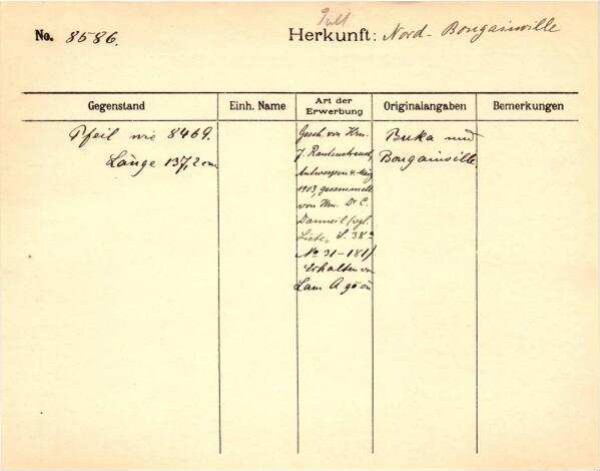 No. 8586.
Herkunft: Nord-Bougainville
Gegenstand
Einh. Name
Art der Erwerbung
Originalangaben
Bemerkungen
Pfeil wie 8469.
Länge 137,2 cm
Gesch. von Hrn.
J. Rautenstrauch,
Antwerpen
1913, gesammelt
von Hrn. Dr. C.
Danneil (vgl.
Liste, S. 38
No 31-181)
Erhalten von
Buka und
Bougainville.